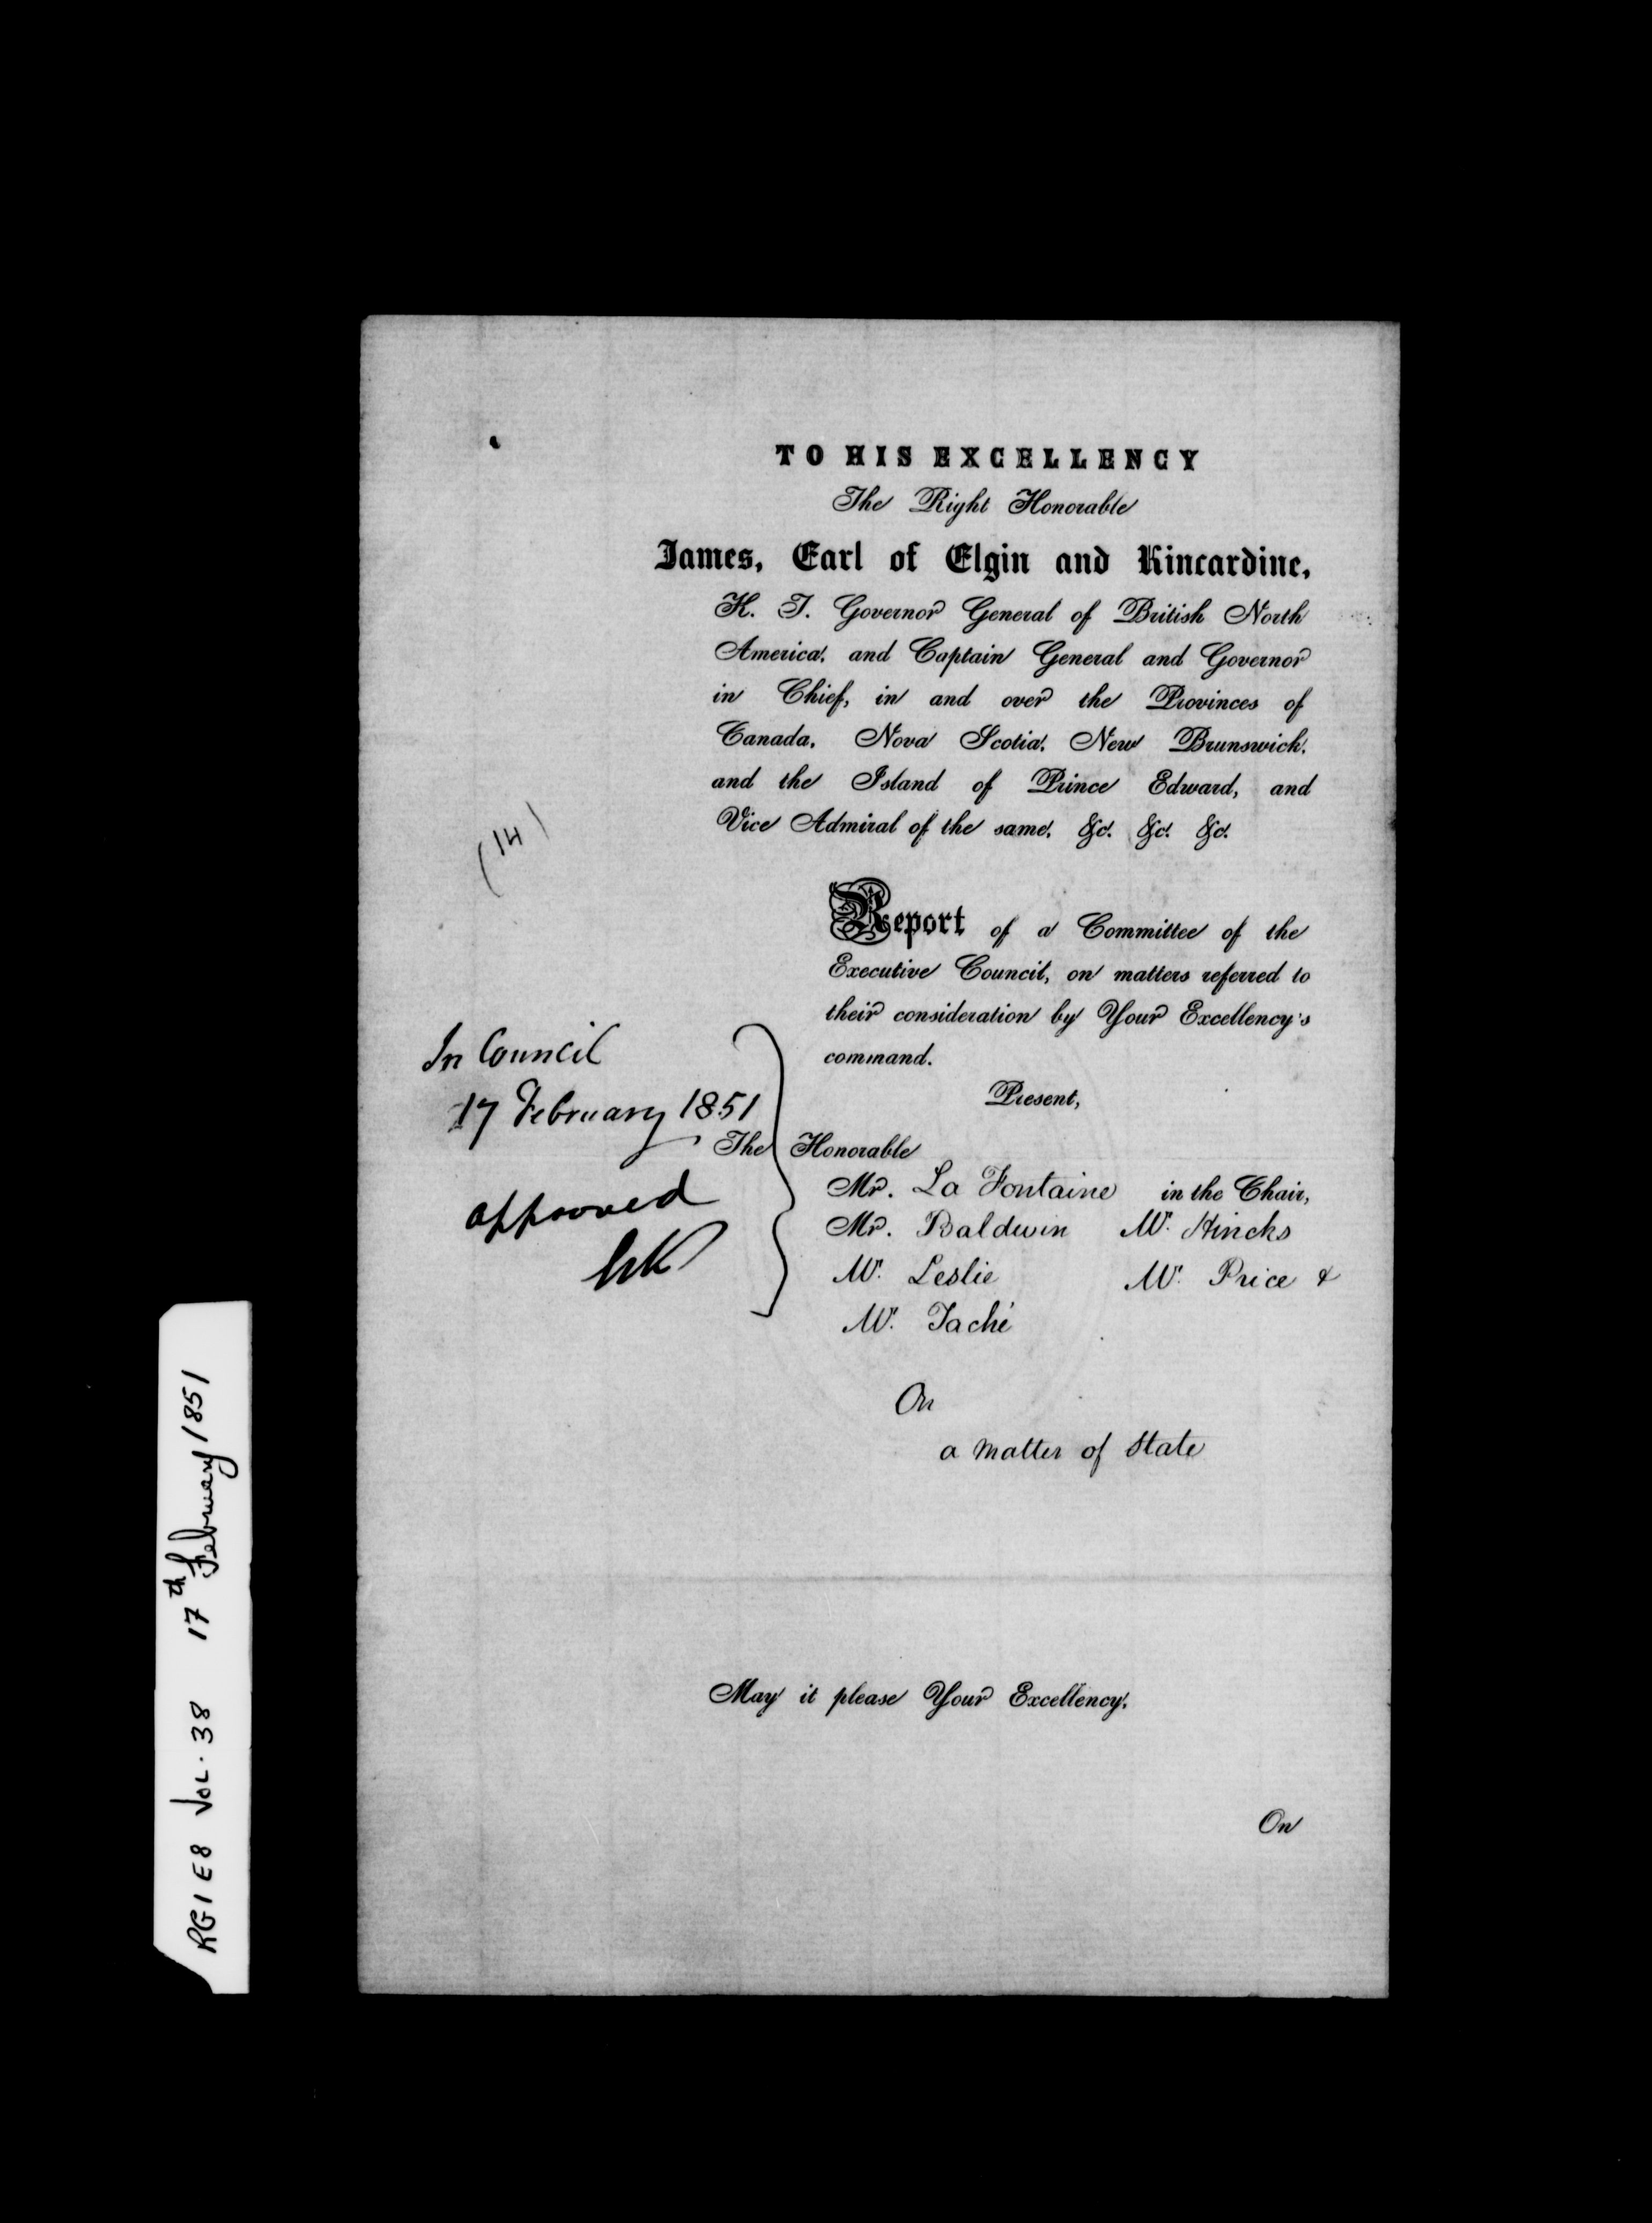 TO HIS EXCELLENCY
The Right Honorable
James, Earl of Elgin and Kincardine,
K. T. Governor General of British North
America, and Captain General and Governor
in Chief, in and over the Provinces of
Canada, Nova Scotia, New Brunswick,
and the Island of Prince Edward, and
Vice Admiral of the same, &c. &c. &c.
(14)
Report of a Committee of the
Executive Council, on matters referred to
their consideration by Your Excellency's
command.
In Council
17 February 1851
approved
Present,
The Honorable
Mr. La Fontaine in the Chair,
Mr. Baldwin Mr. Hincks
Mr. Leslie Mr. Price &
Mr. Taché
On
a matter of State
May it please Your Excellency,
On
RG1 E8 VOL. 38 17th February 1851